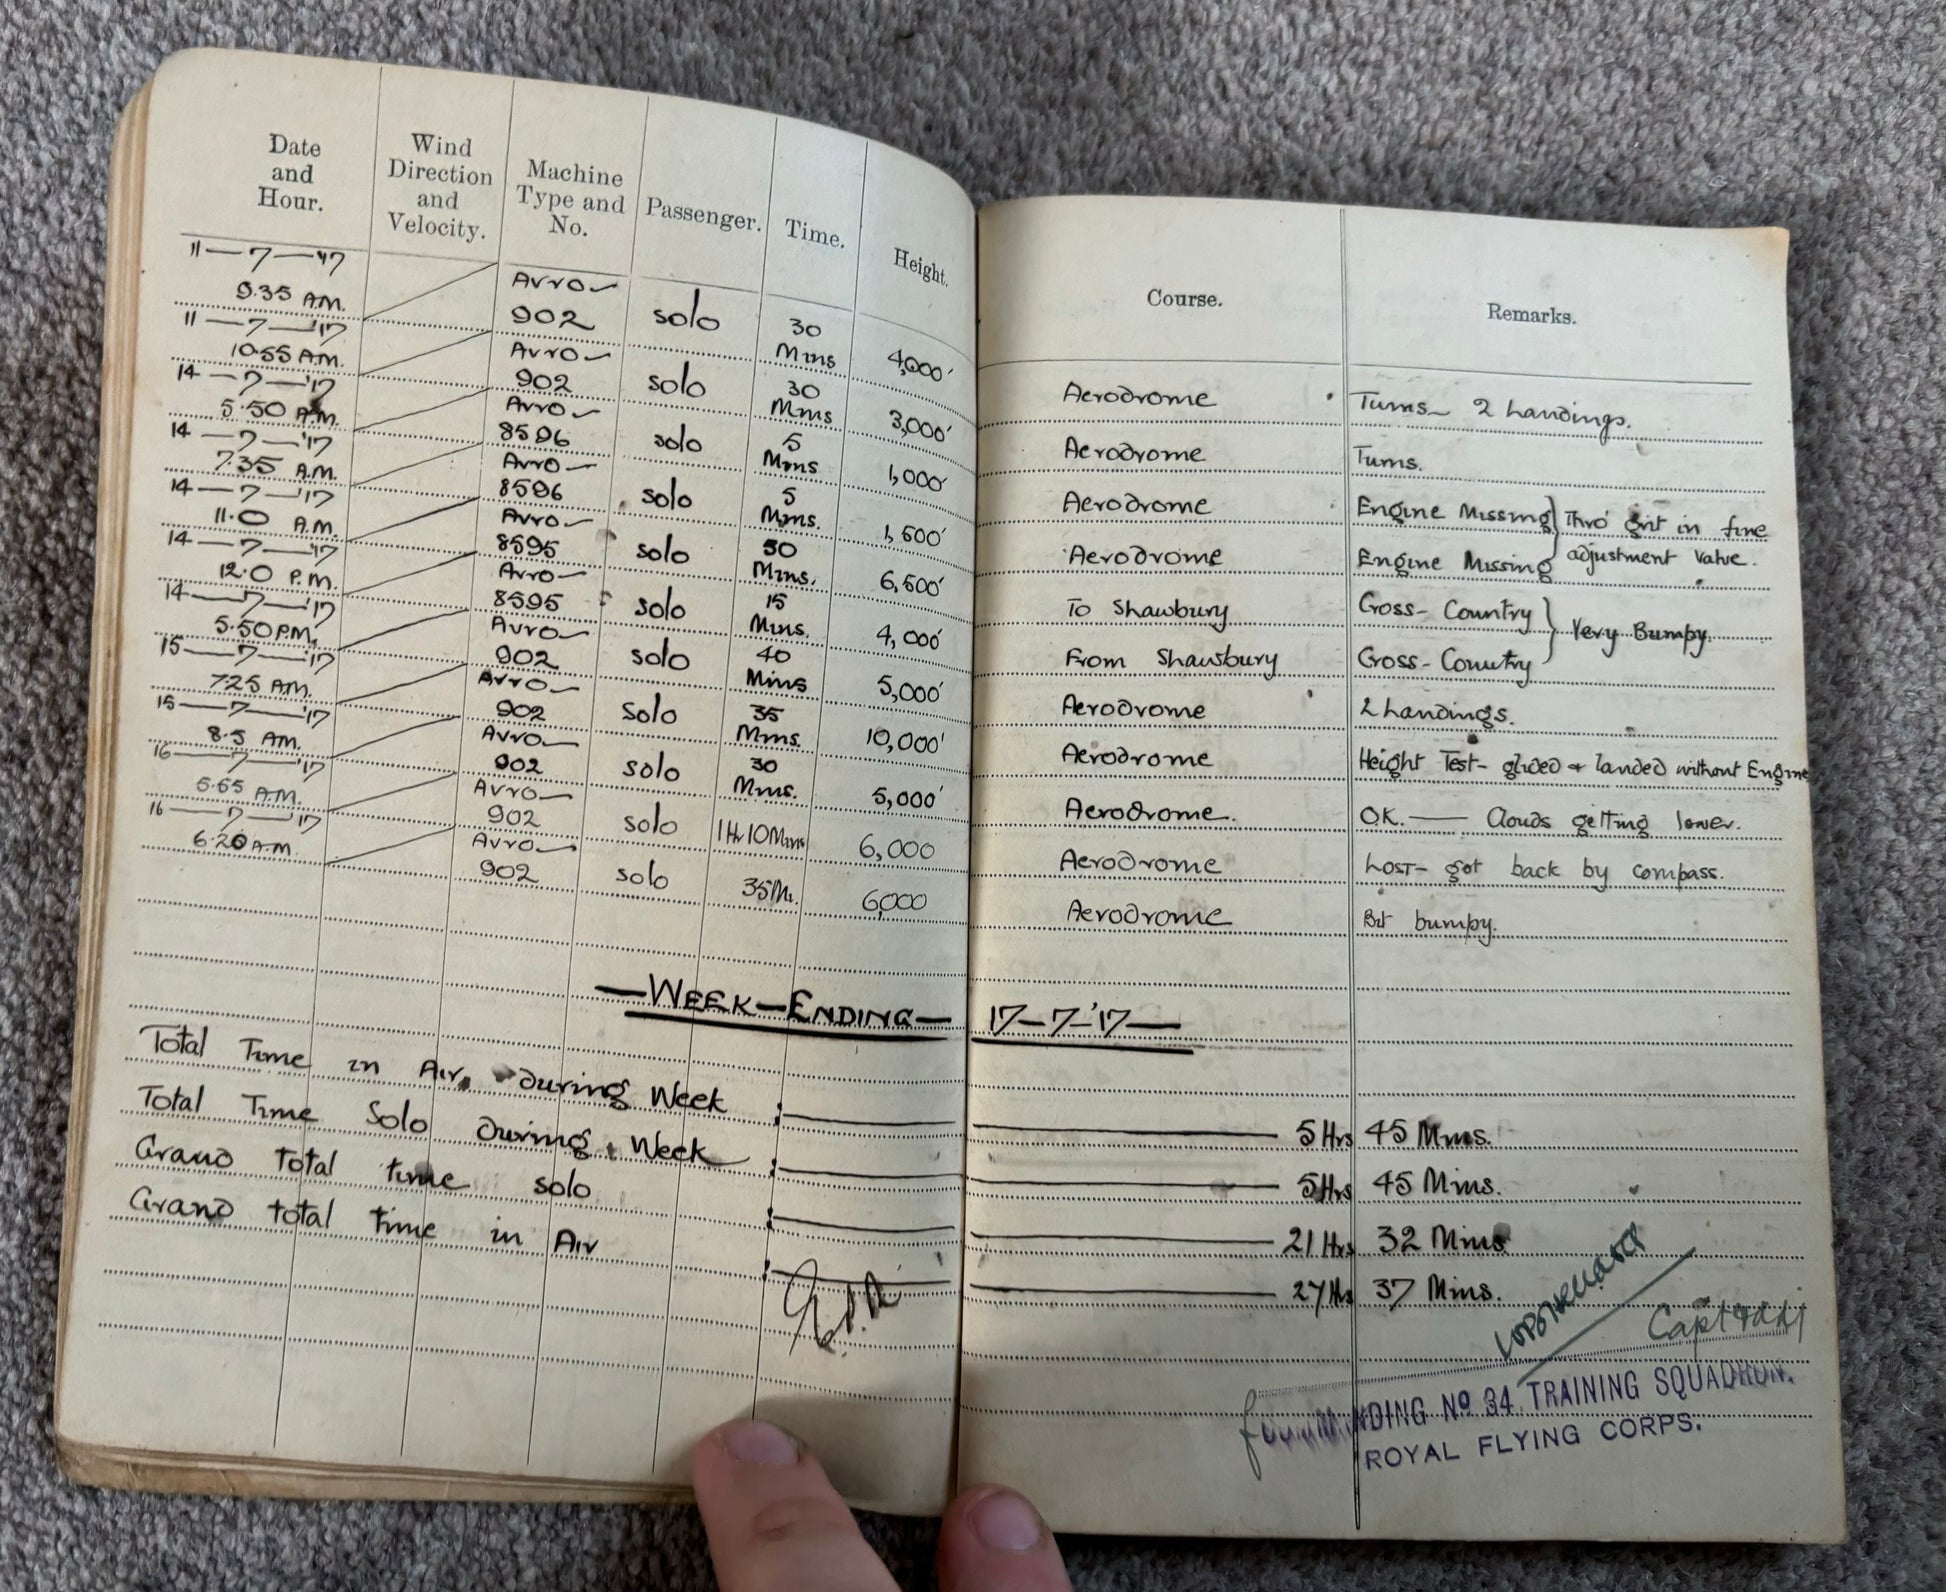 Date and Hour. Wind Direction and Velocity. Machine Type and No. Passenger. Time. Height. Course. Remarks.
11—7—'17 Avro—
9.35 A.M. 902 solo 30 Mins 4,000' Aerodrome Turns— 2 landings.
11—7—'17 Avro—
10.55 A.M. 902 solo 30 Mins 3,000' Aerodrome Turns.
14—7—'17 Avro—
5.50 A.M. 8596 solo 5 Mins 1,000' Aerodrome Engine Missing } Thro' grit in fine
14—7—'17 Avro—
7.35 A.M. 8596 solo 5 Mins. 1,500' Aerodrome Engine Missing } adjustment valve.
14—7—'17 Avro—
11.0 A.M. 8595 solo 50 Mins. 6,500' To Shawbury Cross-Country } Very Bumpy.
14—7—'17 Avro—
12.0 P.M. 8595 solo 15 Mins. 4,000' From Shawbury Cross-Country }
14—7—'17 Avro—
5.50 P.M. 902 solo 40 Mins 5,000' Aerodrome 2 landings.
15—7—'17 Avro—
7.25 A.M. 902 solo 35 Mins. 10,000' Aerodrome Height Test— glided & landed without Engine
15—7—'17 Avro—
8.5 A.M. 902 solo 30 Mins. 5,000' Aerodrome. OK.— Clouds getting lower.
16—7—'17 Avro—
5.55 A.M. 902 solo 1 Hr 10 Mins 6,000 Aerodrome Lost— got back by compass.
16—7—'17 Avro—
6.20 A.M. 902 solo 35 M. 6,000 Aerodrome Bit bumpy.
—WEEK—ENDING— 17—7—'17—
Total Time in Air, during Week : 5 Hrs 45 Mins.
Total Time Solo during Week : 5 Hrs 45 Mins.
Grand total time solo : 21 Hrs 32 Mins
Grand total time in Air : 27 Hrs 37 Mins.
Capt
for COMMANDING No 34 TRAINING SQUADRON.
ROYAL FLYING CORPS.